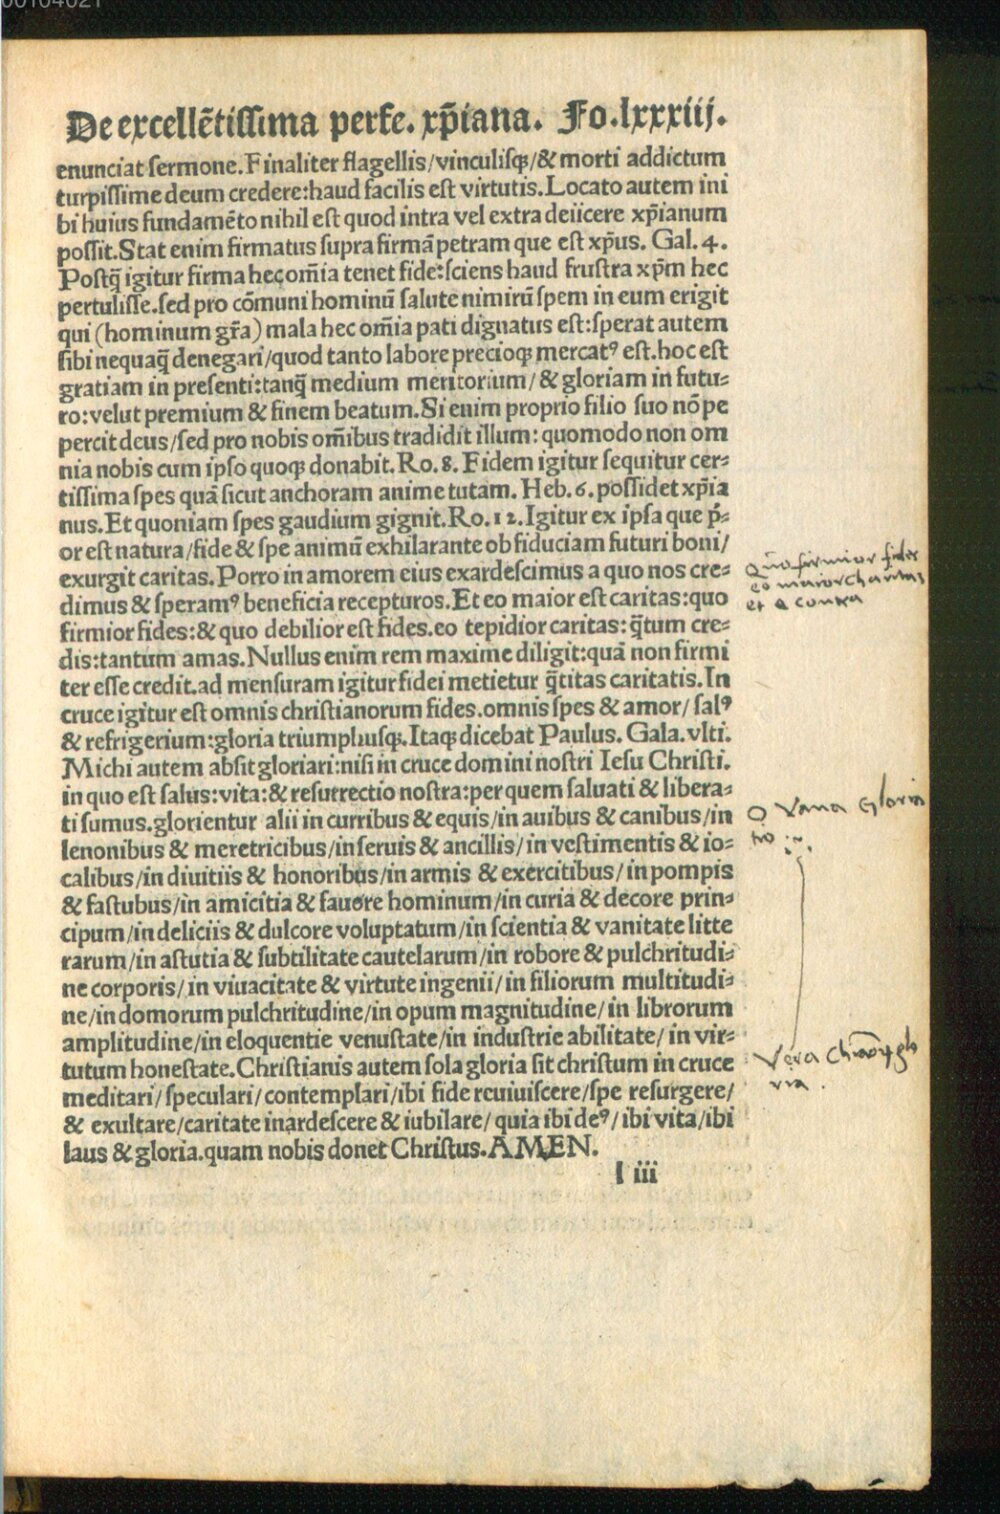 De excellẽtissima perfe. xp̃iana. Fo.lxxxiij.
enunciat sermone. Finaliter flagellis/vinculisq;/& morti addictum
turpissime deum credere:haud facilis est virtutis. Locato autem ini
bi huius fundamẽto nihil est quod intra vel extra deiicere xp̃ianum
possit. Stat enim firmatus supra firmã petram que est xp̃us. Gal. 4.
Postq̃ igitur firma hec om̃ia tenet fide:sciens haud frustra xp̃m hec
pertulisse.sed pro cõmuni hominũ salute nimirũ spem in eum erigit
qui (hominum gr̃a) mala hec om̃ia pati dignatus est:sperat autem
sibi nequaq̃ denegari/quod tanto labore precioq; mercatꝰ est.hoc est
gratiam in presenti:tanq̃ medium meritorium/& gloriam in futu-
ro:velut premium & finem beatum. Si enim proprio filio suo nõ pe
percit deus/sed pro nobis om̃ibus tradidit illum: quomodo non om
nia nobis cum ipso quoq; donabit. Ro. 8. Fidem igitur sequitur cer-
tissima spes quã sicut anchoram anime tutam. Heb. 6. possidet xp̃ia
nus. Et quoniam spes gaudium gignit. Ro. 12. Igitur ex ipsa que p̃-
or est natura/fide & spe animũ exhilarante ob fiduciam futuri boni/
exurgit caritas. Porro in amorem eius exardescimus a quo nos cre-
dimus & speramꝰ beneficia recepturos. Et eo maior est caritas:quo
firmior fides:& quo debilior est fides.eo tepidior caritas: q̃tum cre-
dis:tantum amas. Nullus enim rem maxime diligit:quã non firmi
ter esse credit.ad mensuram igitur fidei metietur q̃titas caritatis. In
cruce igitur est omnis christianorum fides.omnis spes & amor/ salꝰ
& refrigerium:gloria triumphusq;. Itaq; dicebat Paulus. Gala. vlti.
Michi autem absit gloriari:nisi in cruce domini nostri Iesu Christi.
in quo est salus:vita:& resurrectio nostra:per quem saluati & libera-
ti sumus.glorientur alii in curribus & equis/in auibus & canibus/in
lenonibus & meretricibus/in seruis & ancillis/in vestimentis & io-
calibus/in diuitiis & honoribus/in armis & exercitibus/in pompis
& fastubus/in amicitia & fauore hominum/in curia & decore prin-
cipum/in deliciis & dulcore voluptatum/in scientia & vanitate litte
rarum/in astutia & subtilitate cautelarum/in robore & pulchritudi-
ne corporis/in viuacitate & virtute ingenii/in filiorum multitudi-
ne/in domorum pulchritudine/in opum magnitudine/in librorum
amplitudine/in eloquentie venustate/in industrie abilitate/in vir-
tutum honestate. Christianis autem sola gloria sit christum in cruce
meditari/speculari/contemplari/ibi fide reuiuiscere/spe resurgere/
& exultare/caritate inardescere & iubilare/quia ibi deꝰ/ibi vita/ibi
laus & gloria.quam nobis donet Christus. AMEN.
l iii
Quo firmior fides
eo maior charitas
et e contra
O Vana gloria
tio
Vera glo
ria.